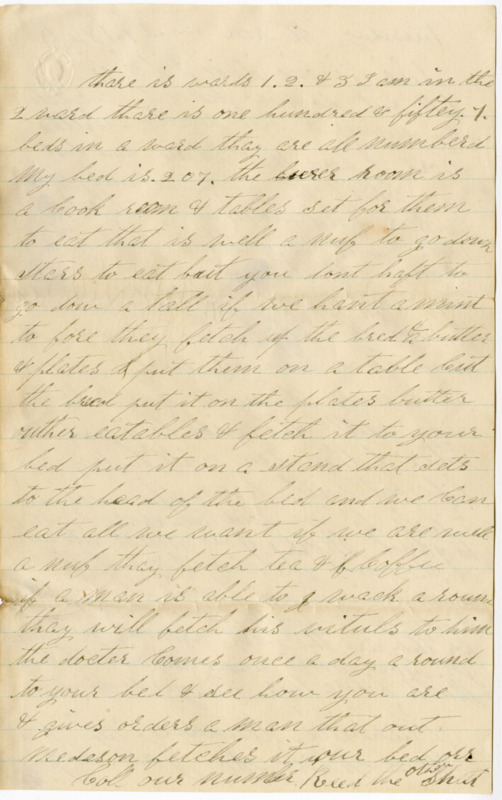 there is wards 1. 2. & 3 I am in the
2 ward there is one hundred & fiftey 7.
beds in a ward thay are all numberd
My bed is. 207. the room is
a Cook room & tables set for them
to eat that is well a nuf to go down
stars to eat but you dont haft to
go dow a tall if we hant a mint
to fore they fetch up the bred & butter
& plates & put them on a table but
the bread put it on the plates butter
uther eatables & fetch it to your
bed put it on a stand that sets
to the head of the bed and we Can
eat all we want if we are well
a nuf thay fetch tea & Coffee
if a man is able to wack a round
thay will fetch his vituls to him
the docter Comes once a day a round
to your bed & see how you are
& gives orders a man that out
medason fetches it our bed or
Coll our number Reed the other Sheet